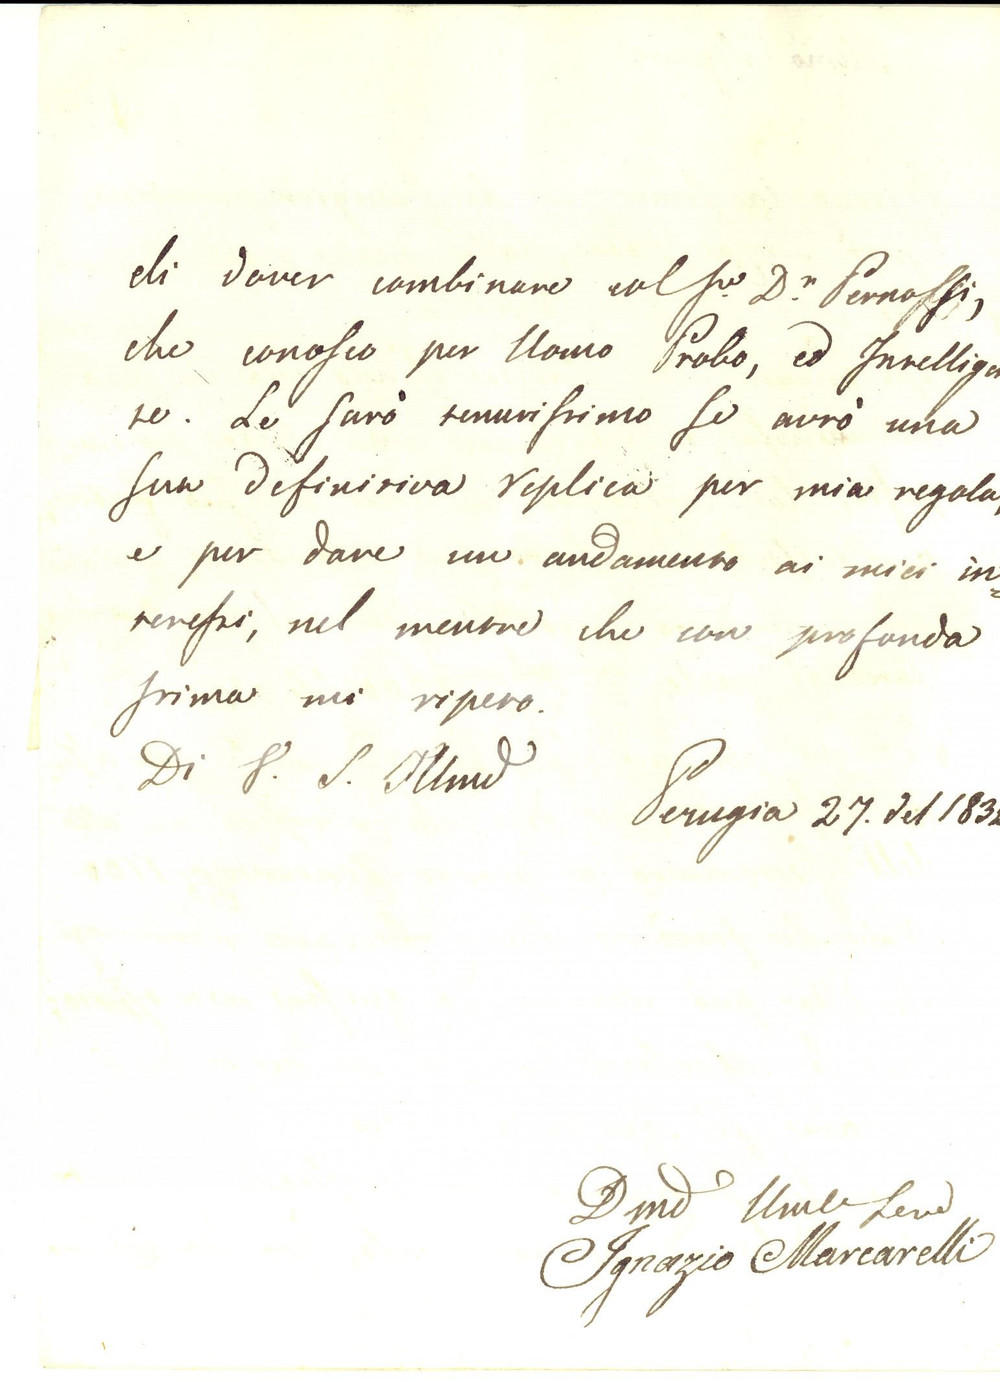 di dover combinare col Sr. Dn. Pernossi,
che conosco per Uomo Probo, ed Intelligen
te. Le sarò tenutissimo se avrò una
sua definitiva replica per mia regola,
e per dare un andamento ai miei in=
teressi, nel mentre che con profonda
stima mi ripeto.
Di V. S. Illmã
Perugia 27. del 183
Dmõ Umle Serv̄
Ignazio Marcarelli